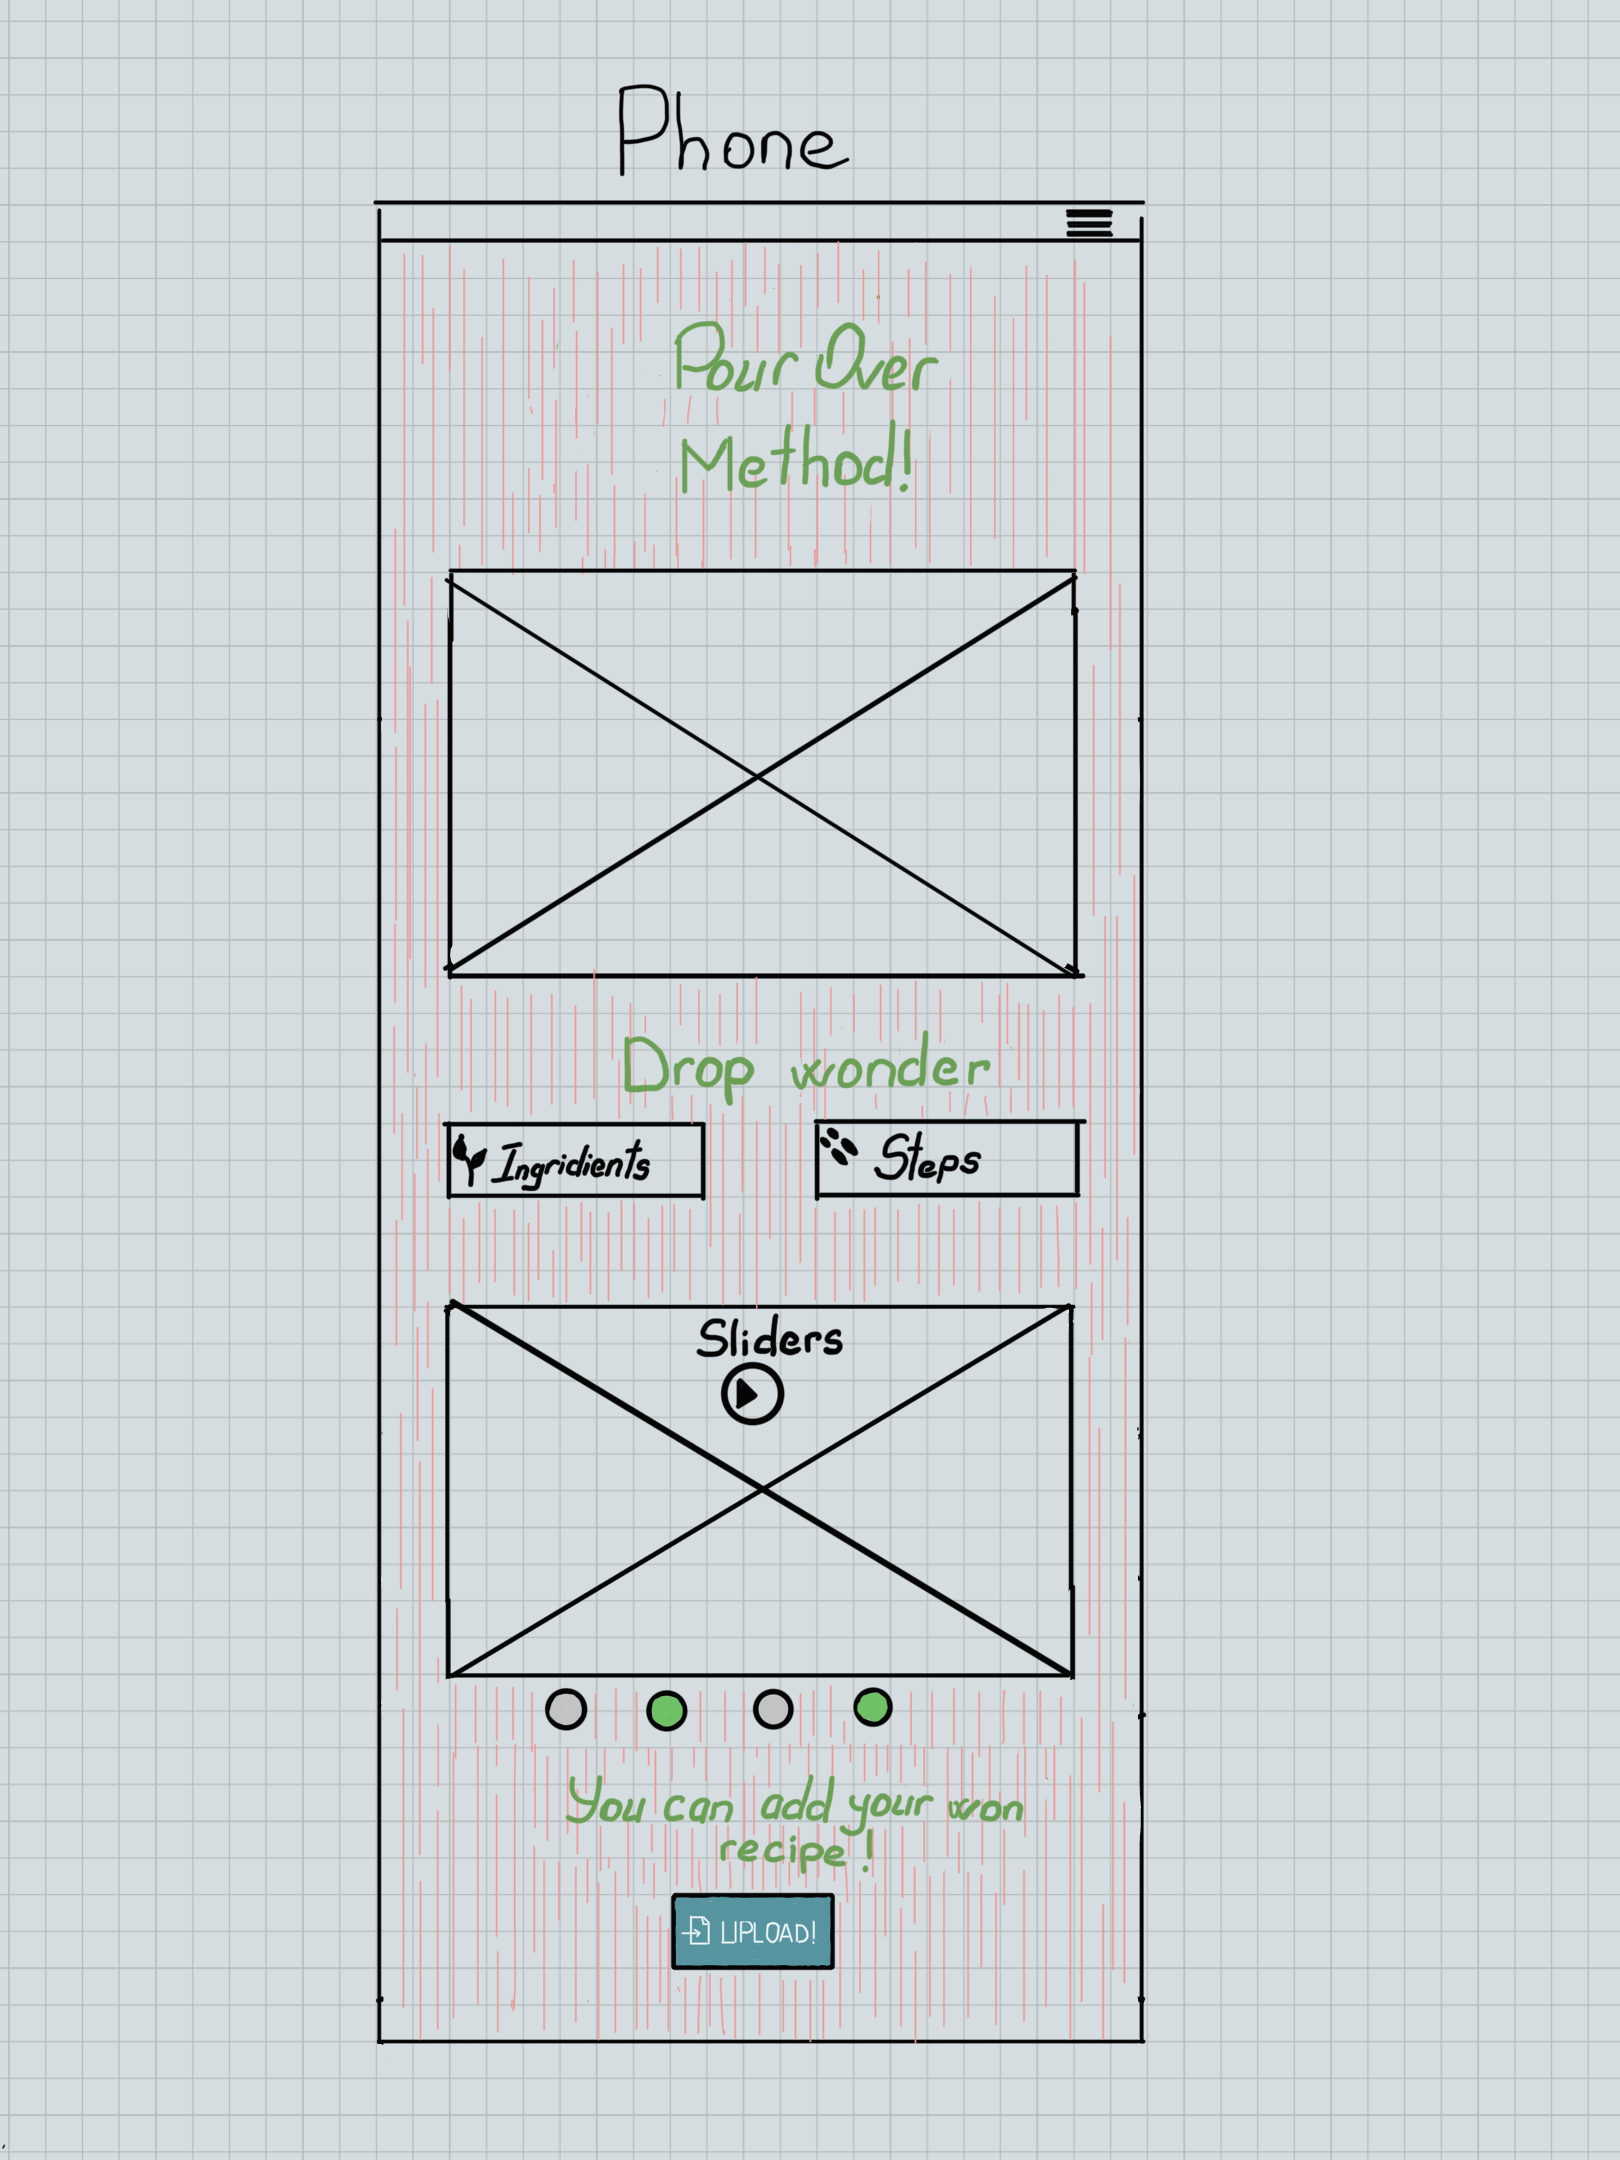 Phone
Pour Over
Method!
Drop wonder
Ingridients
Steps
Sliders
You can add your won
recipe!
UPLOAD!